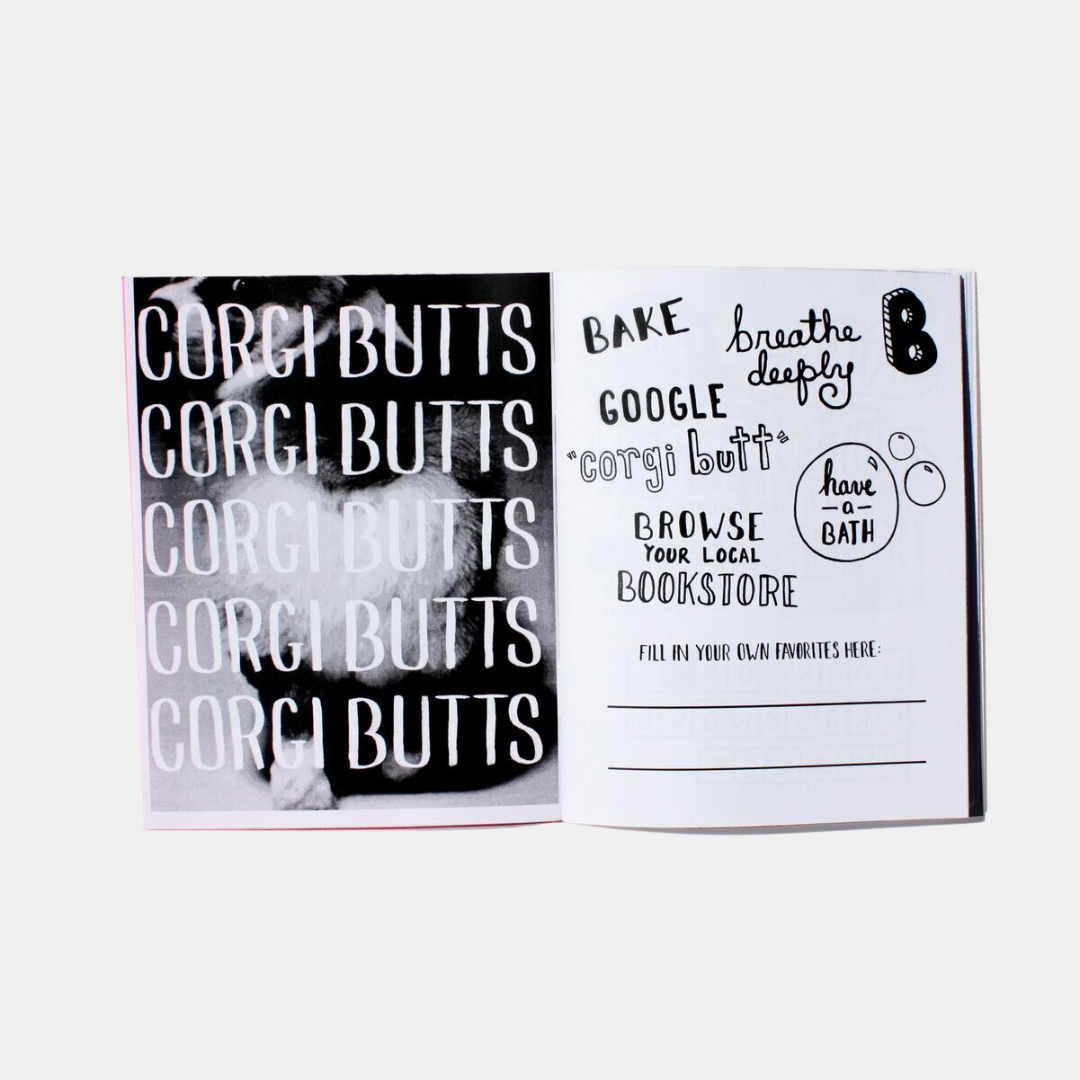 CORGI BUTTS
CORGI BUTTS
CORGI BUTTS
CORGI BUTTS
CORGI BUTTS
B
BAKE
breathe
deeply
GOOGLE
"corgi butt"
have
a
BATH
BROWSE
YOUR LOCAL
BOOKSTORE
FILL IN YOUR OWN FAVORITES HERE: